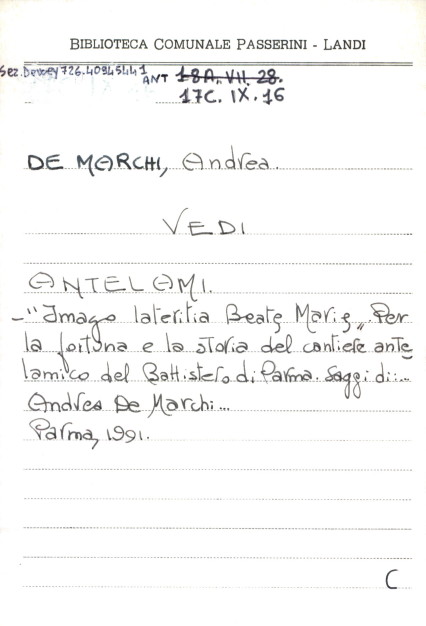 BIBLIOTECA COMUNALE PASSERINI - LANDI
Sez. Dewey 726.40945441
ANT 18A. VII. 28.
17C. IX. 16
DE MARCHI, Andrea.
VEDI
ANTELAMI.
- "Imago lateritia Beatę Marię". Per
la fortuna e la storia del cantiere ante
lamico del Battistero di Parma. Saggi di...
Andrea De Marchi...
Parma, 1991.
C